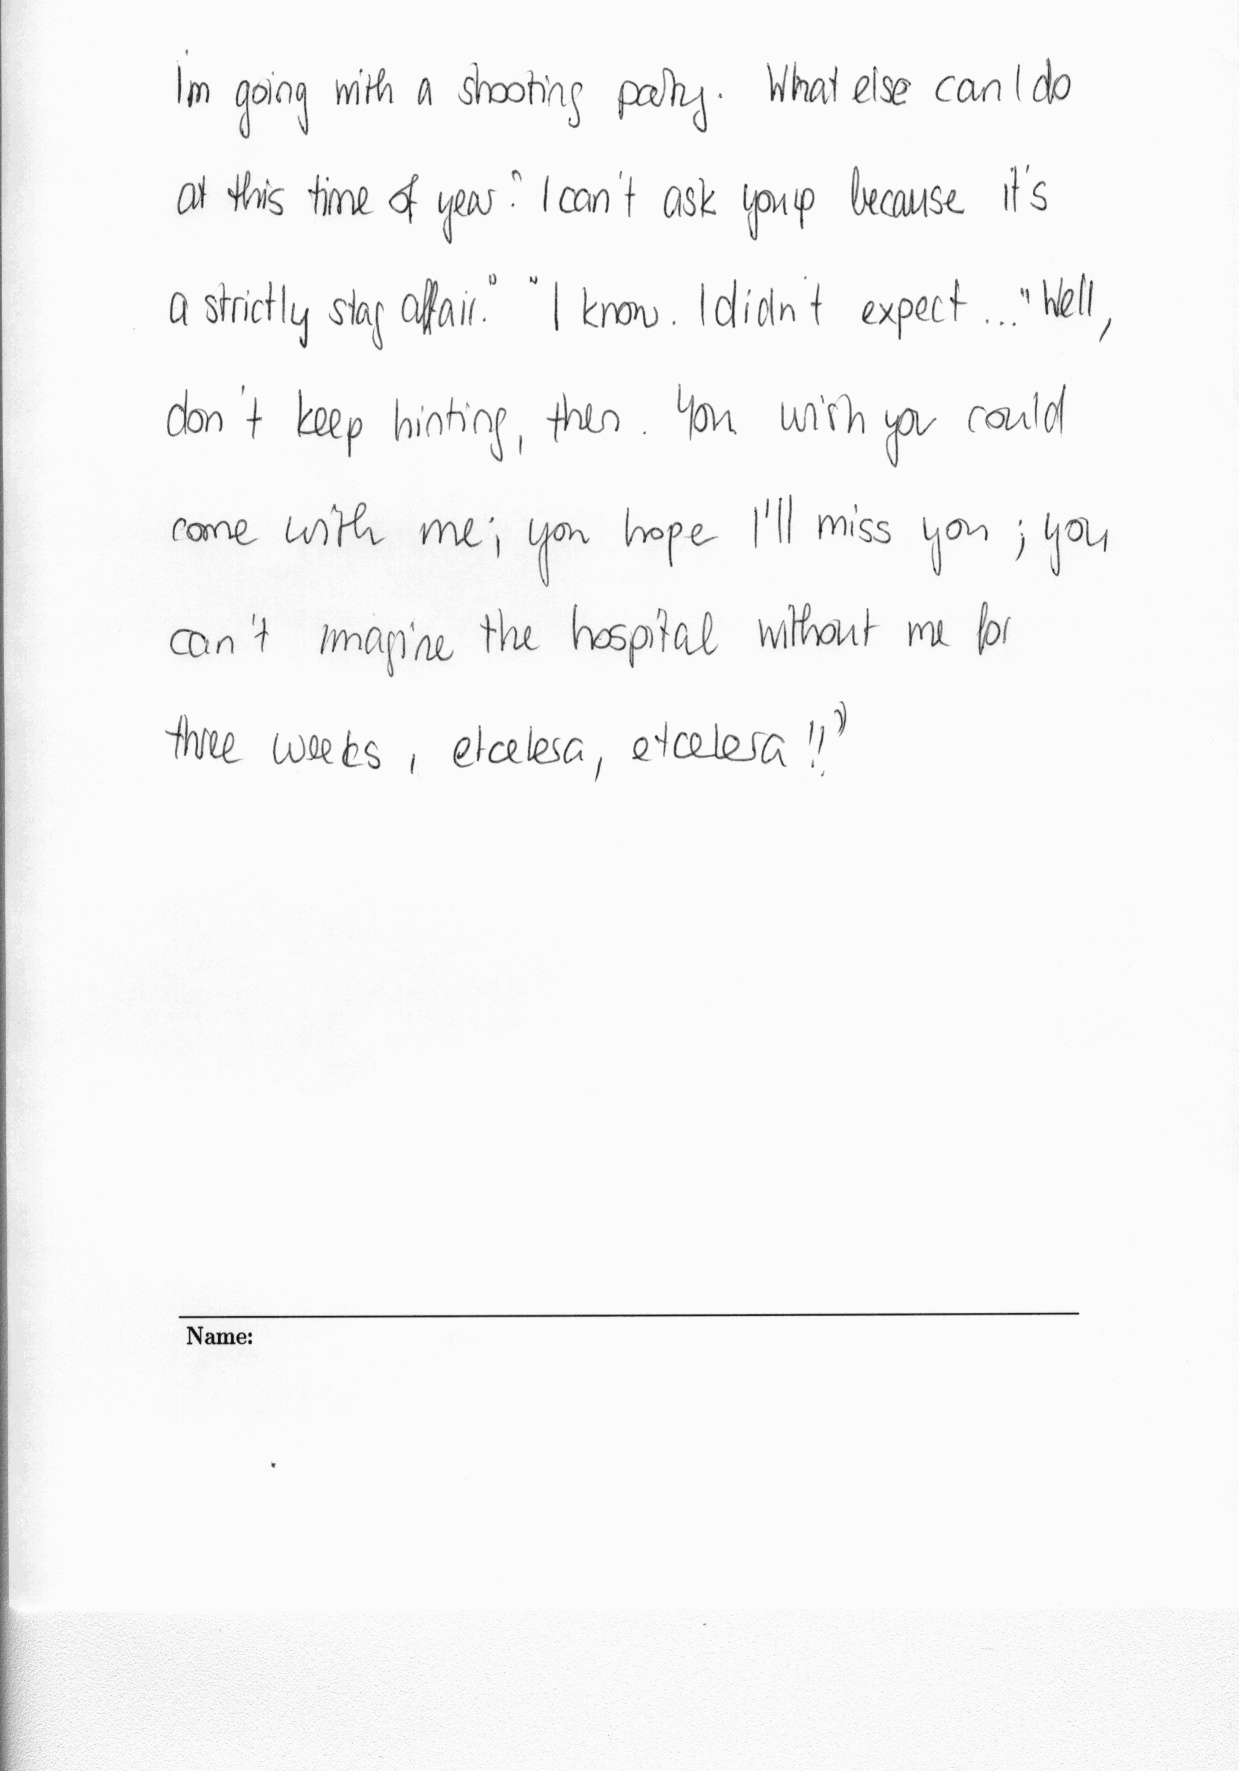 I'm going with a shooting party. What else can I do
at this time of year? I can't ask you up because it's
a strictly stag affair." "I know. I didn't expect ..." Well,
don't keep hinting, then. You wish you could
come with me; you hope I'll miss you; you
can't imagine the hospital without me for
three weeks, etcetera, etcetera!!"
Name: